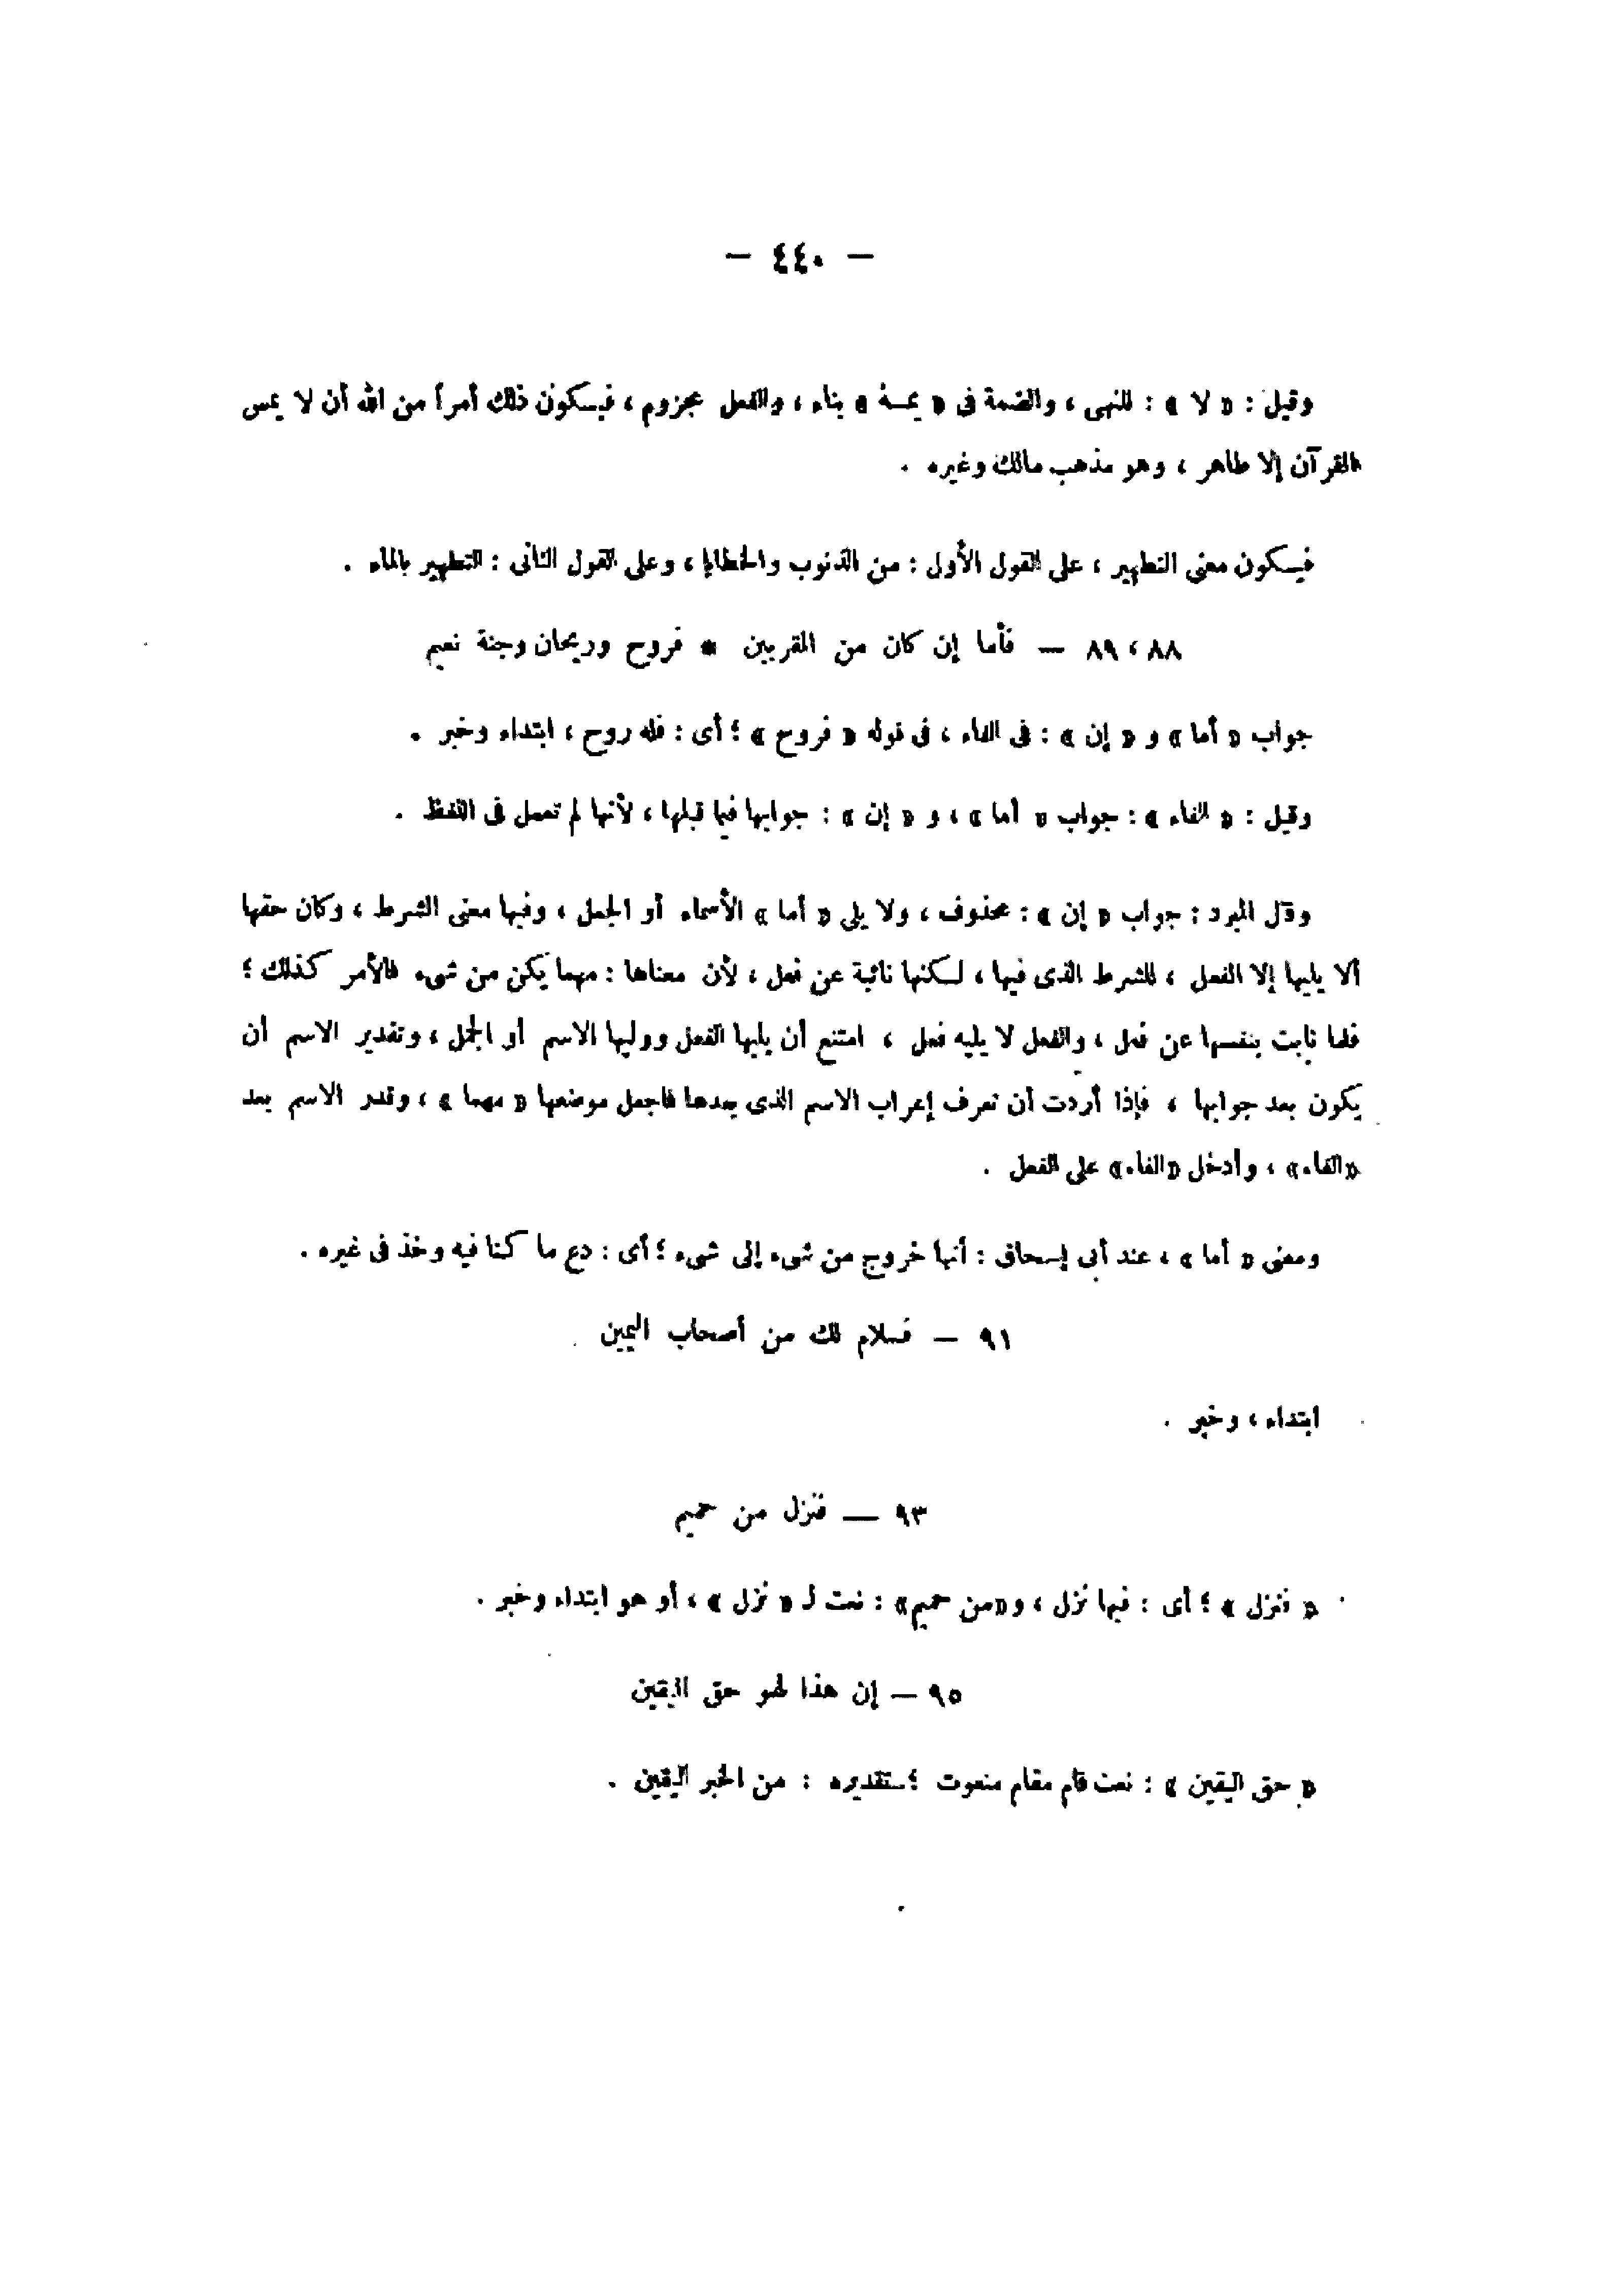 — ٤٤٠ —
وقيل : « لا » : للنهى ، والضمة فى « يمسه » بناء ، والفعل مجزوم ، فيكون ذلك أمراً من الله أن لا يمس
القرآن إلا طاهر ، وهو مذهب مالك وغيره .
فيكون معنى التطهير ، على القول الأول : من الذنوب والخطايا ، وعلى القول الثانى : التطهير بالماء .
٨٨ ، ٨٩ — فأما إن كان من المقربين * فروح وريحان وجنة نعيم
جواب « أما » و « إن » : فى الفاء ، فى قوله « فروح » ؛ أى : فله روح ، ابتداء وخبر .
وقيل : « الفاء » : جواب « أما » ، و « إن » : جوابها فيما قبلها ، لأنها لم تعمل فى اللفظ .
وقال المبرد : جواب « إن » : محذوف ، ولا يلى « أما » الأسماء أو الجمل ، وفيها معنى الشرط ، وكان حقها
ألا يليها إلا الفعل ، للشرط الذى فيها ، لكنها نائبة عن فعل ، لأن معناها : مهما يكن من شىء فالأمر كذلك ؛
فلما نابت بنفسها عن فعل ، والفعل لا يليه فعل ، امتنع أن يليها الفعل ووليها الاسم أو الجمل ، وتقدير الاسم أن
يكون بعد جوابها ، فإذا أردت أن تعرف إعراب الاسم الذى بعدها فاجعل موضعها « مهما » ، وقدر الاسم بعد
«الفاء» ، وأدخل «الفاء» على الفعل .
ومعنى « أما » ، عند أبى إسحاق : أنها خروج من شىء إلى شىء ؛ أى : دع ما كنا فيه وخذ فى غيره .
٩١ — فسلام لك من أصحاب اليمين
ابتداء ، وخبر .
٩٣ — فنزل من حميم
« فنزل » ؛ أى : فيها نزل ، و«من حميم» : نعت لـ « نزل » ، أو هو ابتداء وخبر .
٩٥ — إن هذا لهو حق اليقين
« حق اليقين » : نعت قام مقام منعوت ؛ تقديره : من الخبر اليقين .